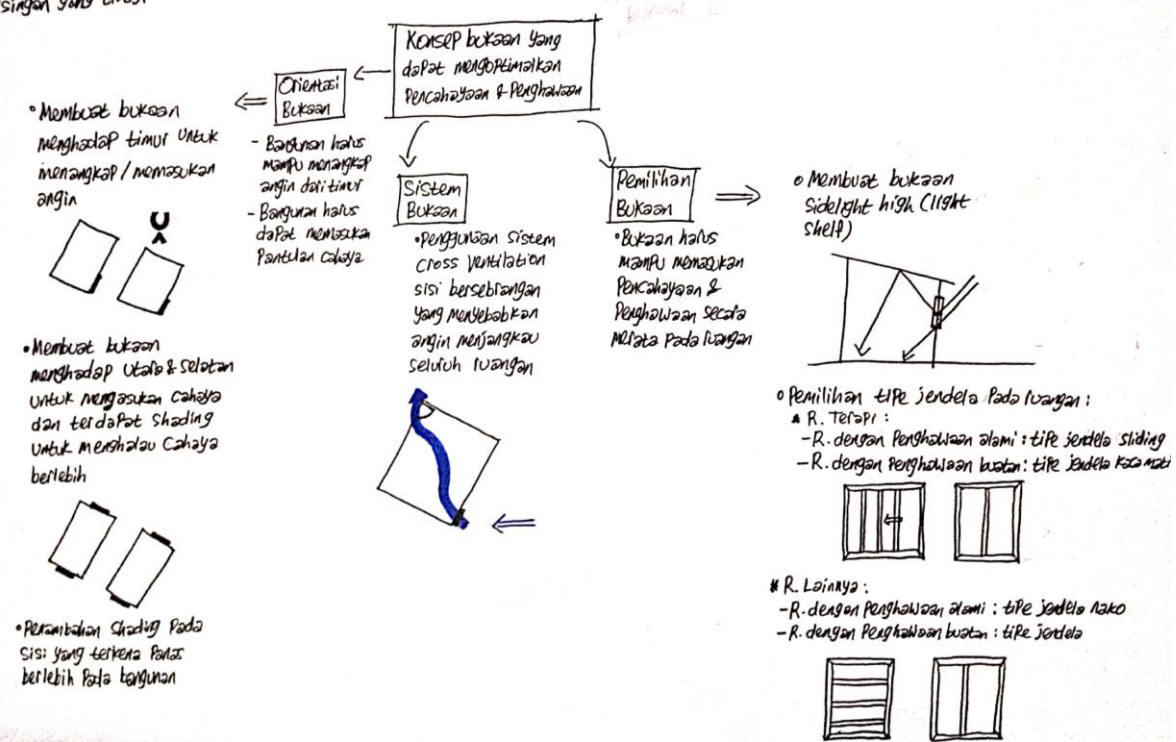 Konsep bukaan yang
dapat mengoptimalkan
Pencahayaan & Penghawaan
Orientasi
Bukaan
- Bangunan harus
mampu menangkap
angin dari timur
- Bangunan harus
dapat memasukan
Pantulan cahaya
• Membuat bukaan
menghadap timur untuk
menangkap / memasukan
angin
• Membuat bukaan
menghadap Utara & selatan
untuk mengasukan cahaya
dan terdapat shading
untuk menghalau cahaya
berlebih
• Penambahan shading Pada
sisi yang terkena Panas
berlebih Pada bangunan
Sistem
Bukaan
• Penggunaan sistem
cross ventilation
sisi bersebrangan
yang menyebabkan
angin menjangkau
seluruh ruangan
Pemilihan
Bukaan
• Bukaan harus
mampu memasukan
Pencahayaan &
Penghawaan secara
merata pada ruangan
o Membuat bukaan
Sidelight high (light
shelf)
o Pemilihan tipe jendela Pada ruangan :
* R. Terapi :
- R. dengan Penghawaan alami : tipe jendela sliding
- R. dengan Penghawaan buatan : tipe jendela kaca mati
* R. Lainnya :
- R. dengan Penghawaan alami : tipe jendela nako
- R. dengan Penghawaan buatan : tipe jendela